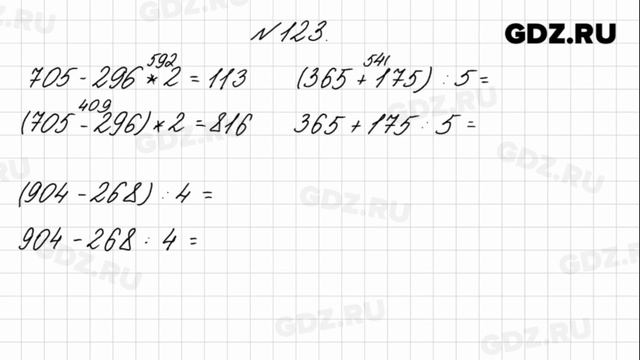 №123.
GDZ.RU
592
705 - 296 * 2 = 113
541
(365 + 175) : 5 =
409
(705 - 296) * 2 = 816
365 + 175 : 5 =
(904 - 268) : 4 =
904 - 268 : 4 =
GDZ.RU
GDZ.RU
GDZ.RU
GDZ.RU
GDZ.RU
GDZ.RU
GDZ.RU
GDZ.RU